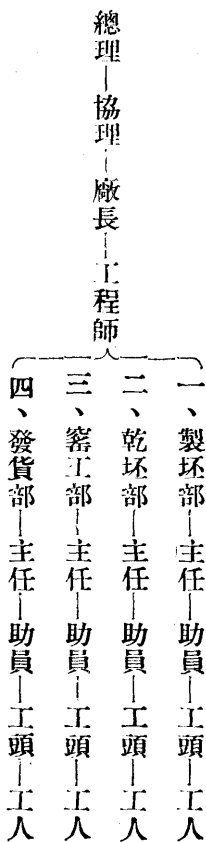 總理—協理—廠長—工程師
一、製坯部—主任—助員—工頭—工人
二、乾坯部—主任—助員—工頭—工人
三、窰工部—主任—助員—工頭—工人
四、發貨部—主任—助員—工頭—工人